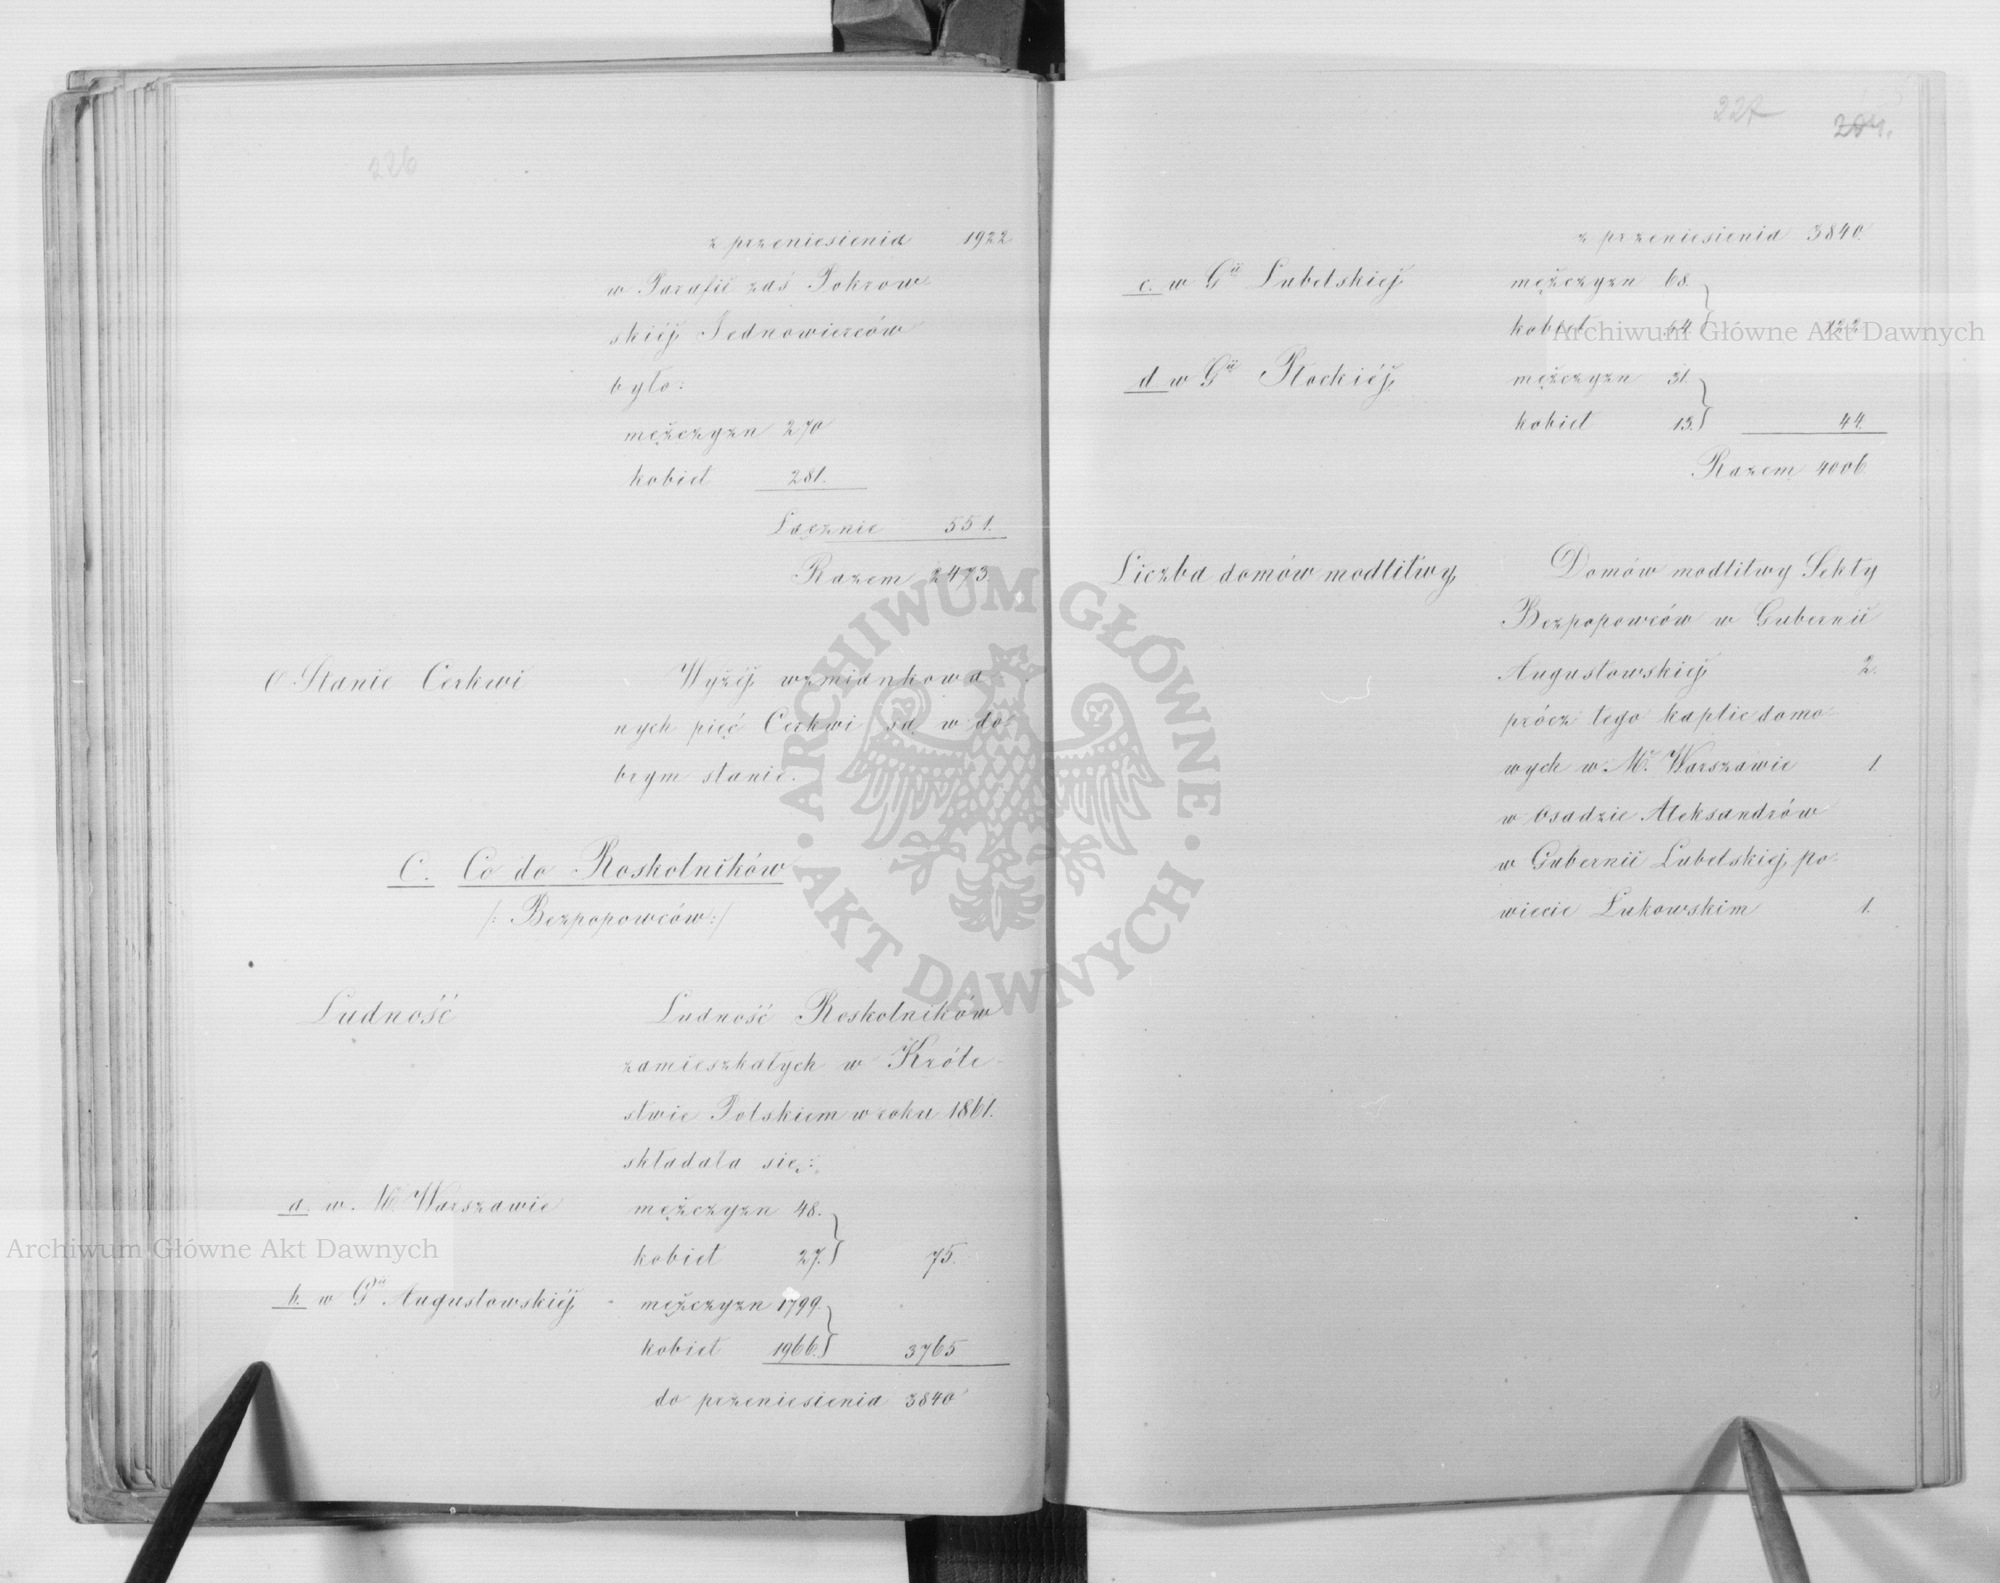 226
z przeniesienia 1922
w Parafii zaś Pokrow
skiéj Jednowierców
było:
mężczyzn 270
kobiet 281.
Łącznie 551.
Razem 2473.
O Stanie Cerkwi
Wyżéj wzmiankowa-
nych pięć Cerkwi są w do-
brym stanie.
C. Co do Roskolników
/: Bezpopowców :/
Ludność
Ludność Roskolników
zamieszkałych w Króle-
stwie Polskiem w roku 1861.
składała się:
a. w. M. Warszawie mężczyzn 48.
kobiet 27. 75.
b. w Gii Augustowskiéj mężczyzn 1799.
kobiet 1966. 3765
do przeniesienia 3840
227 204.
z przeniesienia 3840.
c. w Gii Lubelskiéj mężczyzn 68.
kobiet 54. 122
d w Gii Płockiéj mężczyzn 31.
kobiet 13. 44.
Razem 4006
Liczba domów modlitwy
Domów modlitwy Sekty
Bezpopowców w Gubernii
Augustowskiéj 2.
prócz tego kaplic domo-
wych w M. Warszawie 1.
w Osadzie Aleksandrów
w Gubernii Lubelskiéj po-
wiecie Łukowskim 1.
Archiwum Główne Akt Dawnych
Archiwum Główne Akt Dawnych
ARCHIWUM GŁÓWNE · AKT DAWNYCH ·